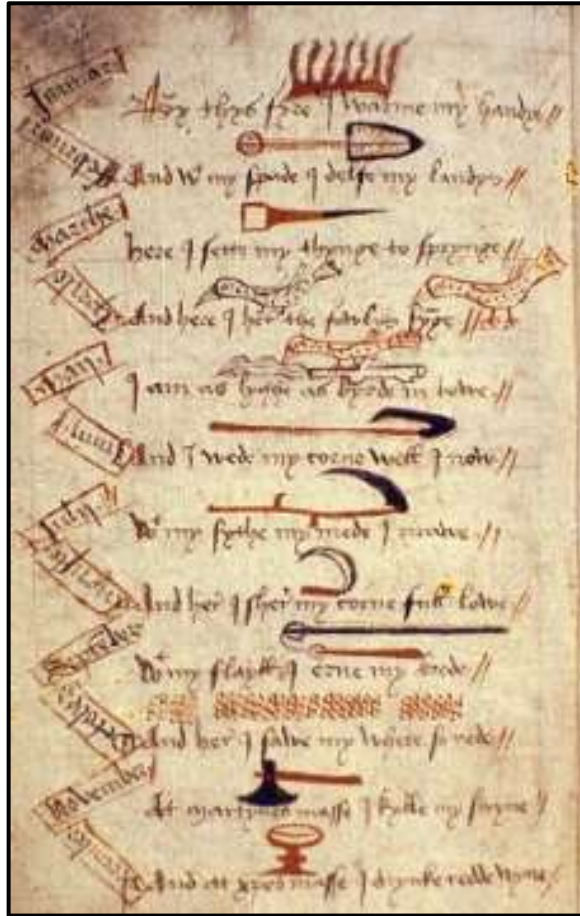 Januar
By thys fyre I warme my handys
Februar
And wt my spade I delfe my landys
Marche
here I sette my thynge to sprynge
Aprile
And here I her the fowlis synge
May
I am as lyght as byrde in bowe
Junij
And I wede my corne well I now
Julij
Wt my sythe my mede I mowe
And her I sher my corne full lowe
September
Wt my flayll I erne my brede
And her I sawe my whete so rede
November
At martynes masse I kylle my swyne
December
And at xpes masse I drynke redde wyne